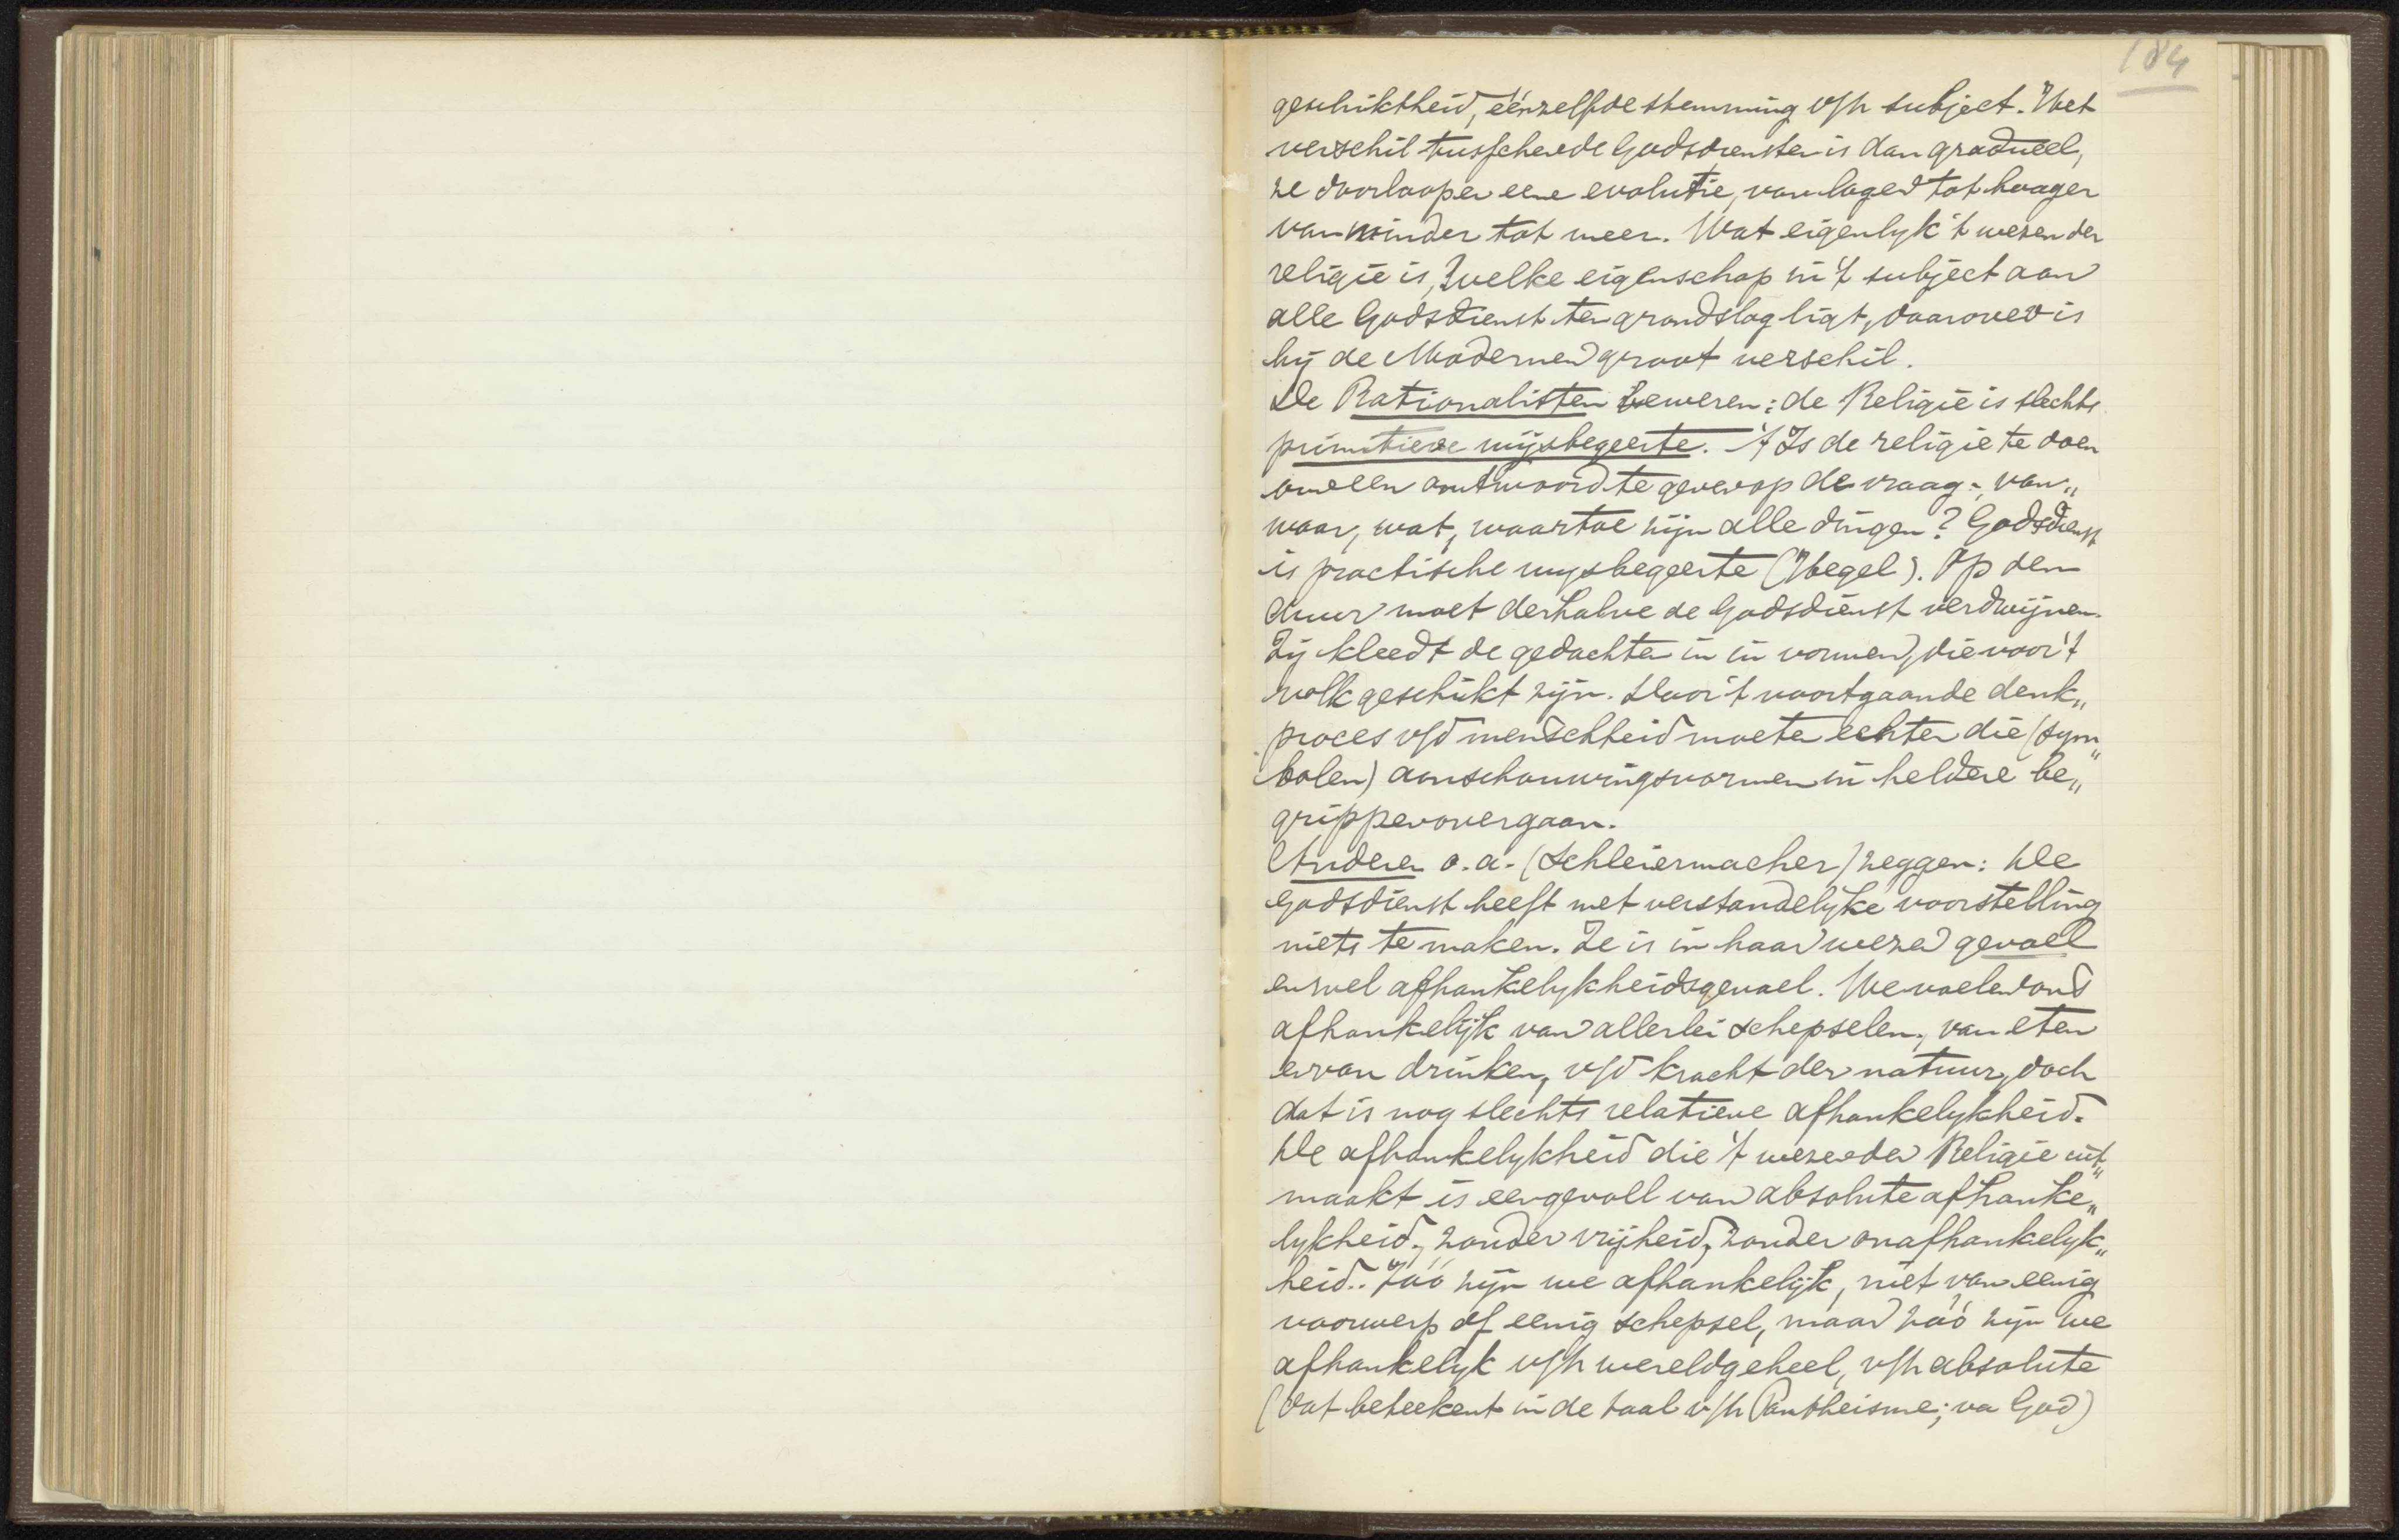 184
geschiktheid, éénzelfde stemming v/h subject. Het
verschil tusschen de Godsdiensten is dan gradueel,
ze doorloopen eene evolutie, van lager tot hooger
van minder tot meer. Wat eigenlyk 't wezen der
religie is, welke eigenschap in 't subject aan
alle Godsdienst ten grondslag ligt, daarover is
bij de Modernen groot verschil.
De Rationalisten beweren: de Religie is slechts
primitieve wijsbegeerte. 't Is de religie te doen
om een antwoord te geven op de vraag: van„
waar, wat, waartoe zijn alle dingen? Godsdienst
is practische wysbegeerte (Hegel). Op den
duur moet derhalve de Godsdienst verdwijnen.
Zij kleedt de gedachten in in vormen, die voor 't
volk geschikt zijn. Door 't voortgaande denk„
proces v/d menschheid moeten echter die (sym„
bolen) aanschouwingsvormen in heldere be„
grippen overgaan.
Anderen o.a. (Schleiermacher) zeggen: De
godsdienst heeft met verstandelyke voorstelling
niets te maken. Ze is in haar wezen gevoel
en wel afhankelykheidsgevoel. We voelen ons
afhankelijk van allerlei schepselen, van eten
en van drinken, v/d kracht der natuur, doch
dat is nog slechts relatieve afhankelykheid.
De afhankelykheid die 't wezen der Religie uit„
maakt is een gevoel van absolute afhanke„
lykheid, zonder vrijheid, zonder onafhankelyk„
heid. Zóó zijn we afhankelijk, niet van eenig
voorwerp of eenig schepsel, maar zóó zijn we
afhankelyk v/h wereldgeheel, v/h absolute
(dat beteekent in de taal v/h Pantheisme; va God)